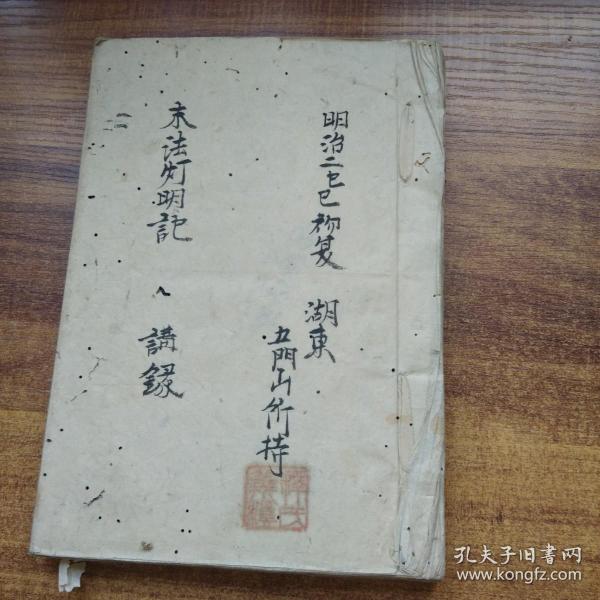 明治二己巳初夏
湖東
五門山所持
末法灯明記
講録
孔夫子旧書网
www.kongfz.com